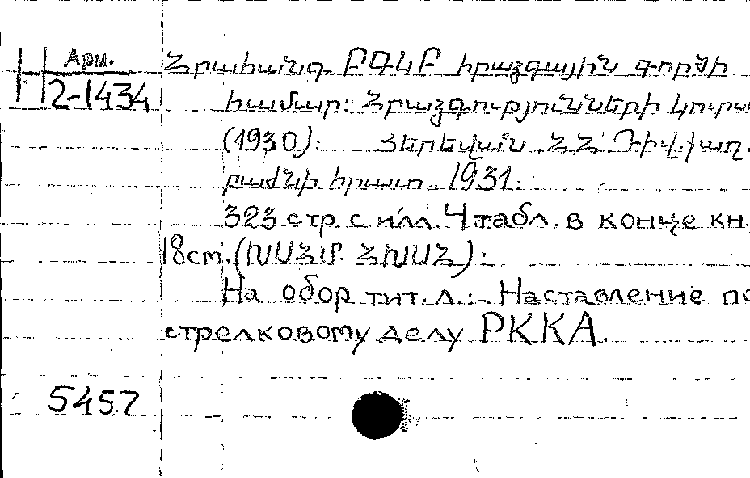 Арм.
2-1434
Հրահանգ ԲԳԿԲ հրազգային գործի
համար: Հրազգություններ
(1930). Յերեվան ՀՀ
բաժնի հրատ. 1931.
323 стр. с илл. 4 табл. в конце кн.
18 см. (ԽՍՀՄ ՀԽՍՀ):
На обор. тит. л.: Наставление по
стрелковому делу РККА.
5457